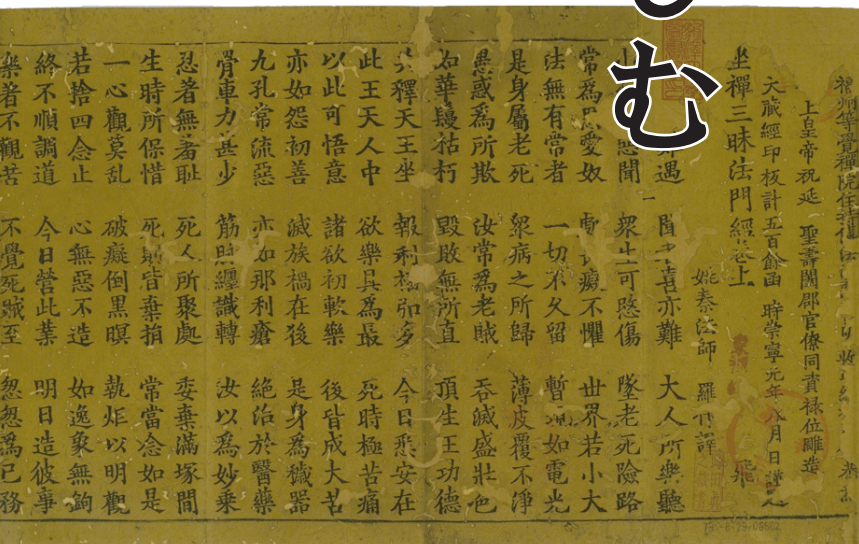 む
福州等覺禪院住持傳法
上皇帝祝延 聖壽闔郡官僚同資祿位雕造
大藏經印板計五百餘函 時崇寧元年 月日謹
坐禪三昧法門經卷上
姚秦法師羅什譯
遇 聞 喜亦難 大人所樂聽
聞 衆生可愍傷 墜老死險路
常為 愛奴 不懼 世界若小大
法無有常者 一切不久留 暫 如電光
是身屬老死 衆病之所歸 薄皮覆不淨
愚惑為所欺 汝常為老賊 吞滅盛壯色
如華鬘枯朽 毀敗無所直 頂生王功德
釋天王坐 報利 多 今日悉安在
此王天人中 欲樂具為最 死時極苦痛
以此可悟意 諸欲初軟樂 後皆成大苦
亦如怨初善 滅族禍在後 是身為穢器
九孔常流惡 亦如那利瘡 絕治於醫藥
骨車力甚少 筋 纏識轉 汝以為妙乗
忍著無羞恥 死人所聚處 委棄滿塚間
生時所保惜 死則皆棄捐 常當念如是
一心觀莫亂 破癡倒黑暝 執炬以明觀
若捨四念止 心無惡不造 如逸象無鉤
終不順調道 今日營此業 明日造彼事
樂著不觀苦 不覺死賊至 怱怱為己務